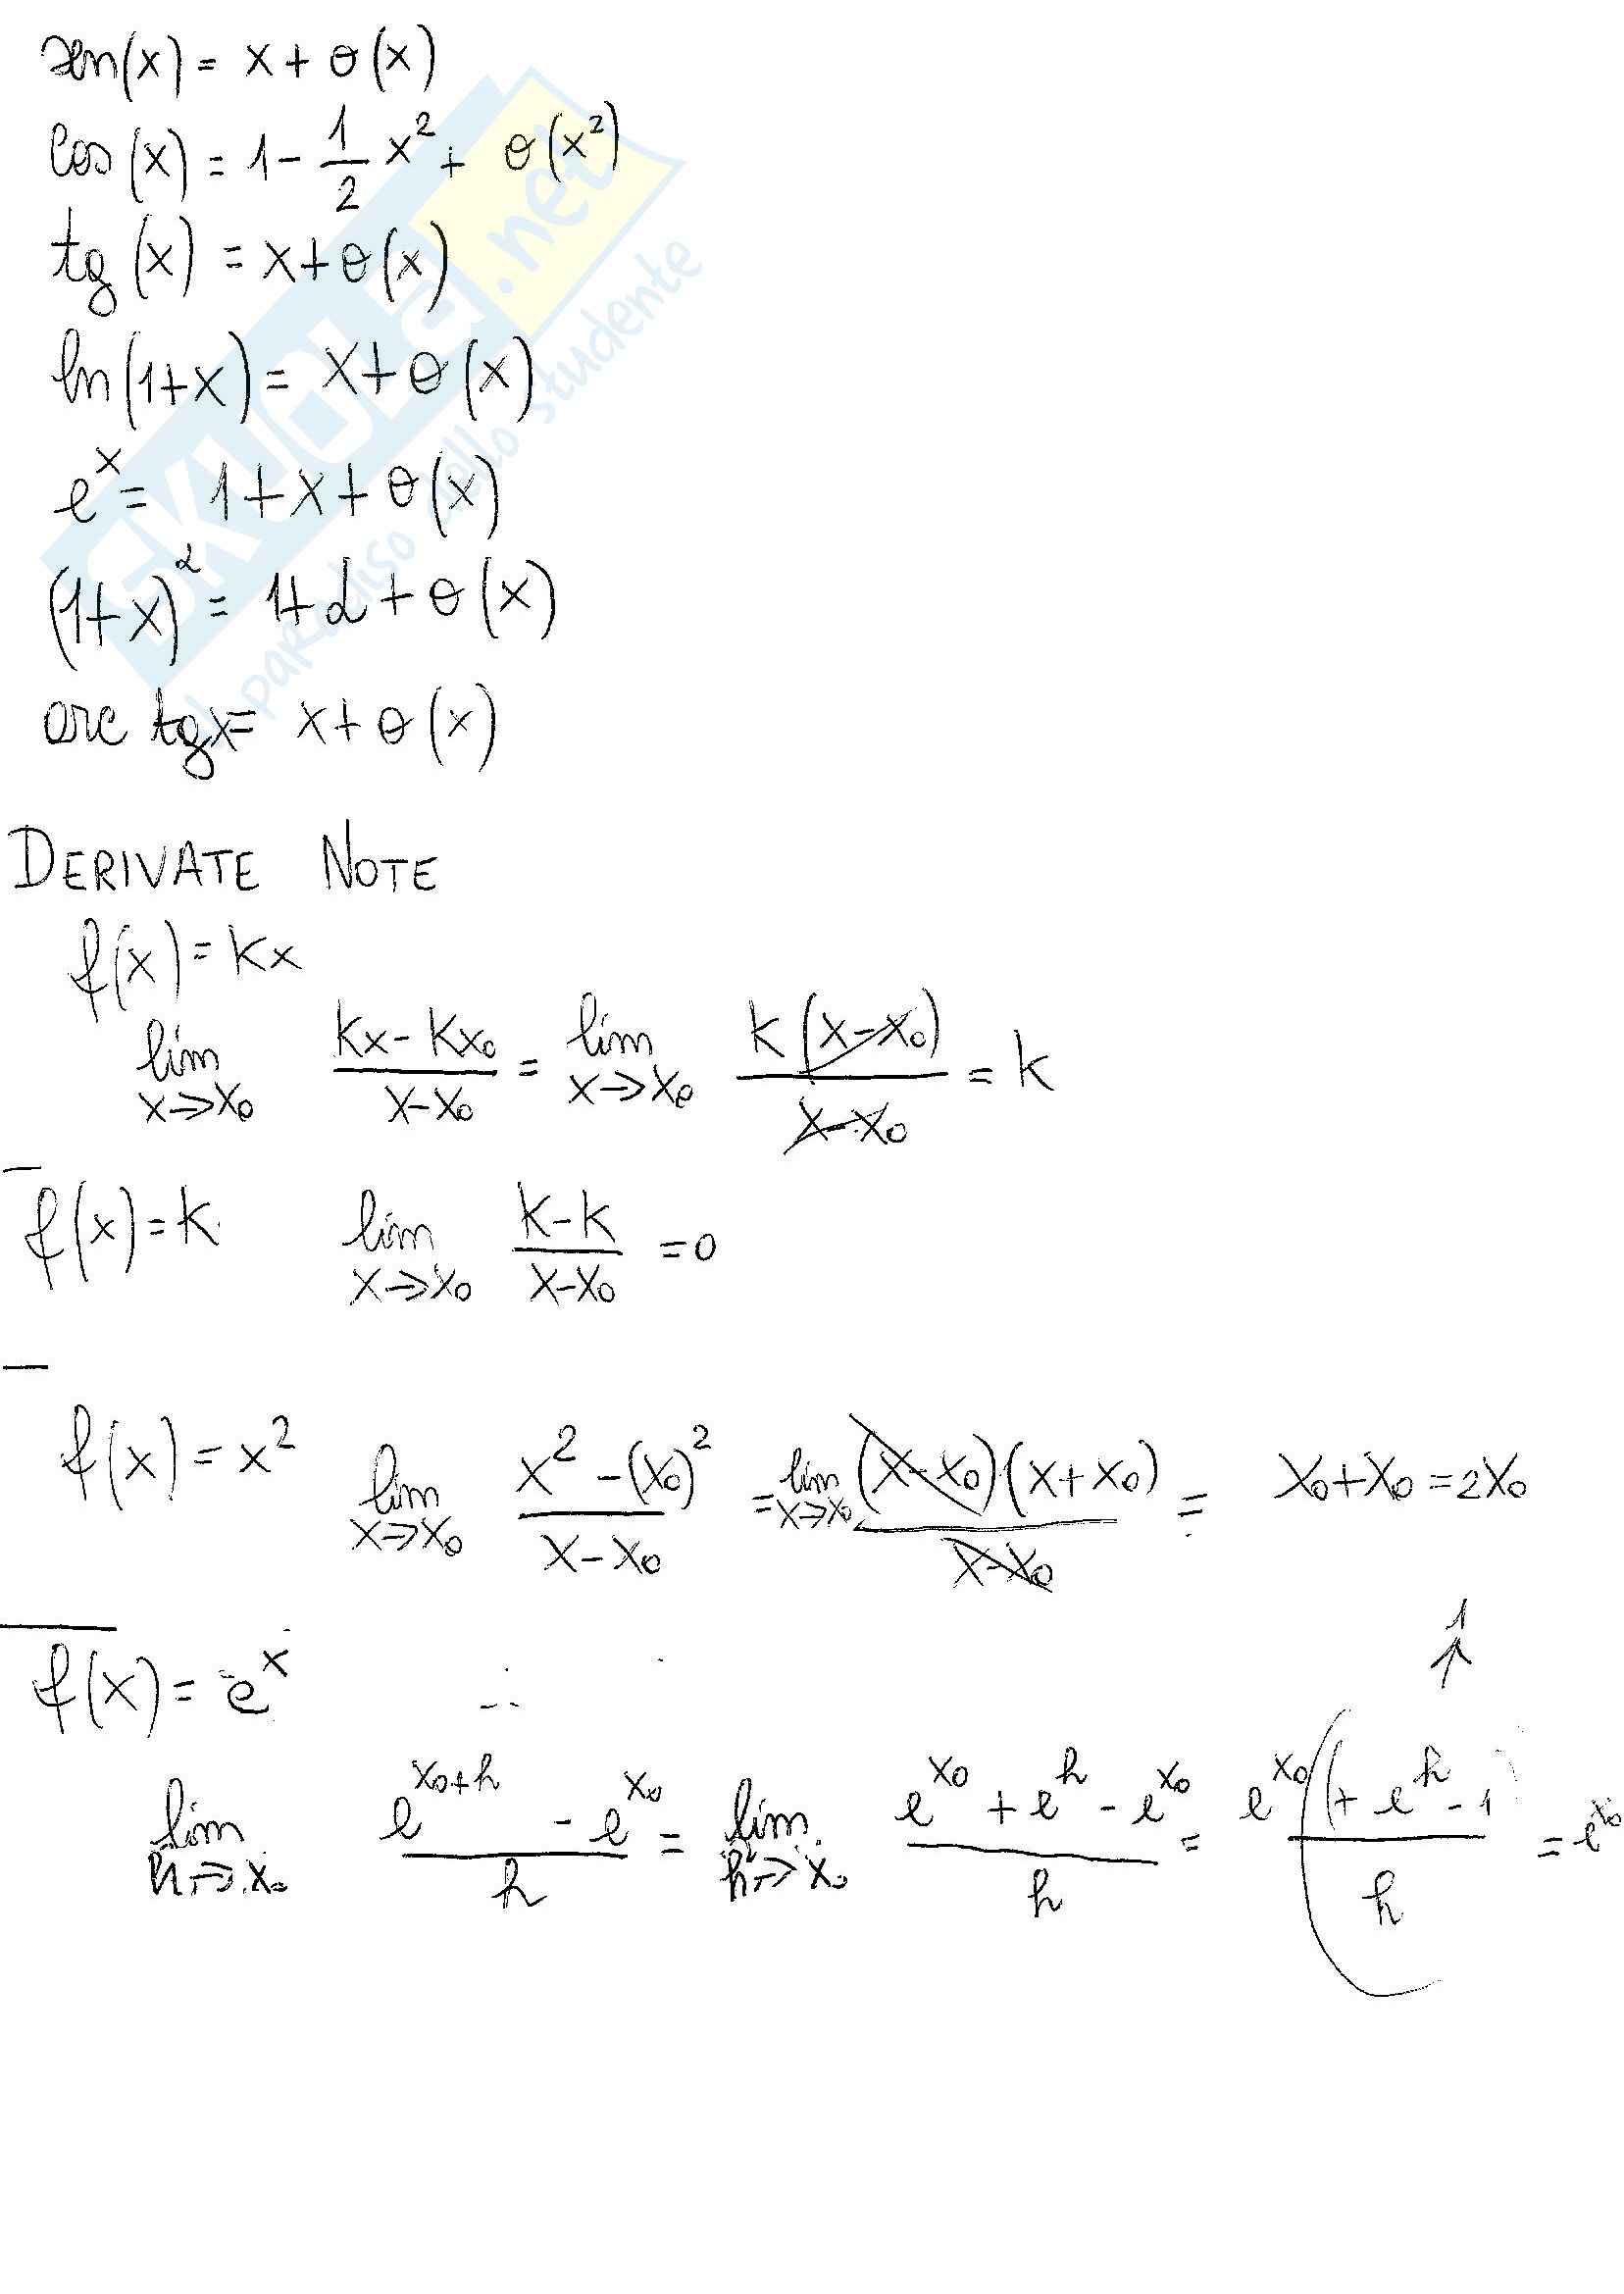 sen(x) = x + o(x)
cos(x) = 1 - 1/2 x² + o(x²)
tg(x) = x + o(x)
ln(1+x) = x + o(x)
e^x = 1 + x + o(x)
(1+x)^α = 1 + α + o(x)
arc tgx = x + o(x)
SKUOLA.net
il paradiso dello studente
DERIVATE NOTE
f(x) = kx
lim x→x₀ (kx - kx₀)/(x - x₀) = lim x→x₀ k(x - x₀)/(x - x₀) = k
f(x) = k lim x→x₀ (k - k)/(x - x₀) = 0
f(x) = x² lim x→x₀ (x² - (x₀)²)/(x - x₀) = lim x→x₀ (x - x₀)(x + x₀)/(x - x₀) = x₀ + x₀ = 2x₀
f(x) = e^x
1
↑
lim h→x₀ (e^(x₀+h) - e^x₀)/h = lim h→x₀ (e^x₀ + e^h - e^x₀)/h = e^x₀ (+ e^h - 1)/h = e^x₀